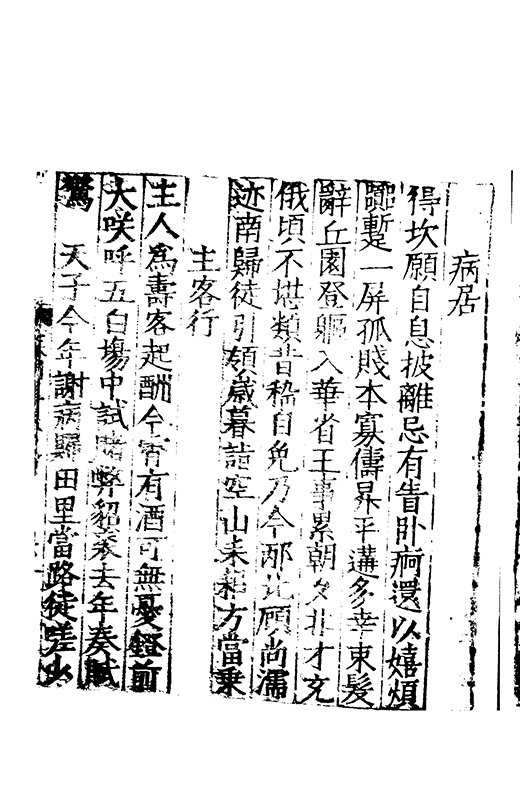 病居
得坎願自息披離忌有眚卧痾還以嬉煩
躑蹔一屏孤賤本寡儔昇平遘多幸束髮
辭丘園登軀入華省王事累朝夕非才充
俄頃不堪類昔嵇自免乃今邴此願尚濡
迹南歸徒引領歲暮詣空山耒耜方當秉
主客行
主人爲壽客起酬今宵有酒可無憂鐙前
大咲呼五白場中試賭弊貂裘去年奏賦
驚 天子今年謝病歸田里當路徒嗟